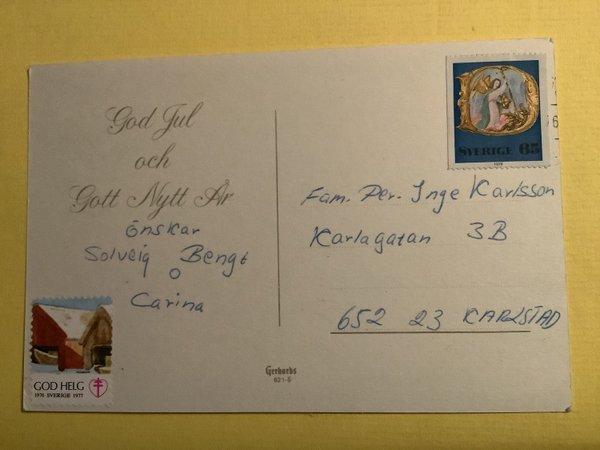 God Jul
och
Gott Nytt År
önskar
Solveig Bengt
o
Carina
GOD HELG
1976 · SVERIGE 1977
SVERIGE 65
1976
Fam. Per-Inge Karlsson
Karlagatan 3B
652 23 KARLSTAD
Gerhards
621-5